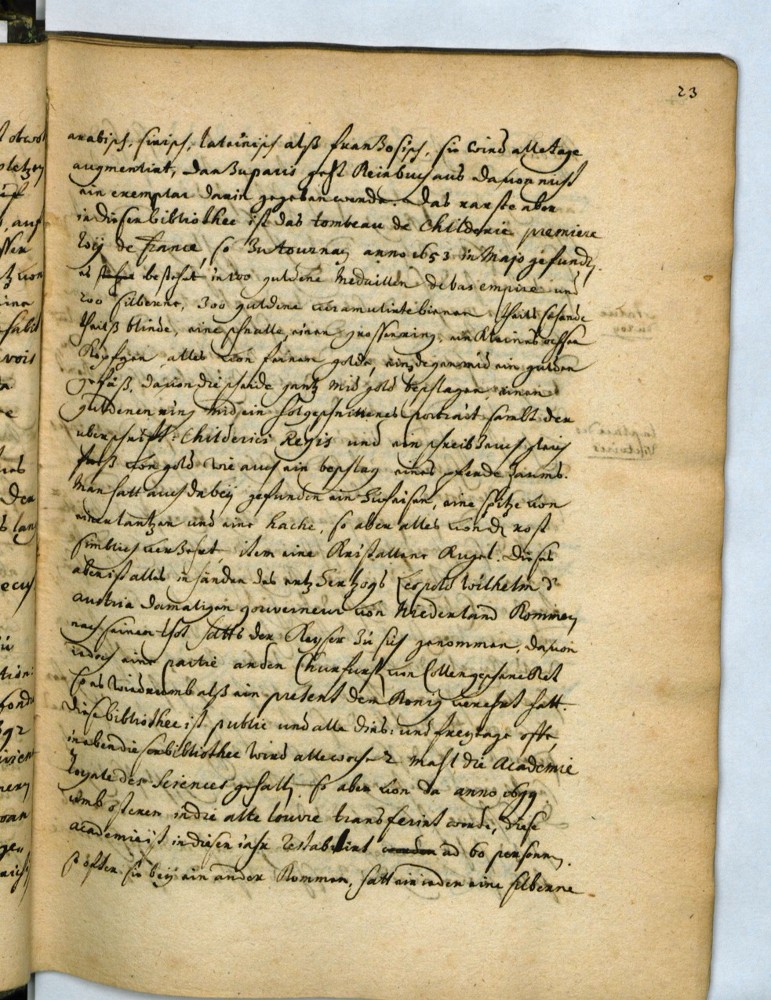 23
arabisch, sirisch, lateinisch alß franßosisch, sie wird alle tage
augmentirt, dan zu paris geht kein buch aus davon nicht
ein exemplar darin gegeben werde. das rarste aber
in diesen bibliothec ist das tombeau de Childeric premiere
roy de france, so zu tournay anno 1653 in Majo gefunden.
es bestehet in 100 guldene Medaillen de bas empire und
200 silberne, 300 guldene bienen, theils sehende
theilß blinde, eine schnalle, einen grossen ring, ein kleines ochsen
köpfgen, alles von feinem golde, ein degen mid ein gulden
gefäß, davon die scheide gantz mid gold beschlagen, einen
guldenen ring mid ein portrait sambt der
uberschrifft: Childerici Regis und ein schreibzeuch gleich
fals von gold wie auch ein beschlag eines pferde zaums.
Man hatt auch dabey gefunden ein hufaisen, eine spitze von
einer lantzen und eine hache, so aber alles von den rost
zimblich verzehrt, item eine kristallene kugel. Dieses
aber ist alles in händen des ertz Hertzogs Leopold Wilhelm d'
austria damaligen gouverneur von Niederland kommen
nach seinen thot hatts der Keyser zu sich genommen, davon
iedoch eine partie an den Churfürst von Collen geschencket
so es wiedrumb alß ein present dem König verehrt hatt.
Diese bibliothec ist public und alle dins: und freytage offen,
in eben dieser bibliothec wird alle woche 2 mahl die Academie
royale des Sciences gehalten, so aber von da anno 1699
umb osteren in die alte louvre transferirt worde, diese
academie ist in diesen iahr restablirt ad 60 personen.
so offter sie bey ein ander kommen, hatt ein ieder eine silberne